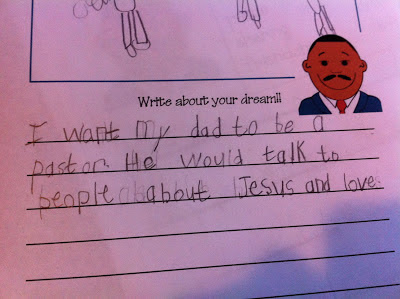 Write about your dream!!
I want my dad to be a
pastor. He would talk to
people about Jesus and love.